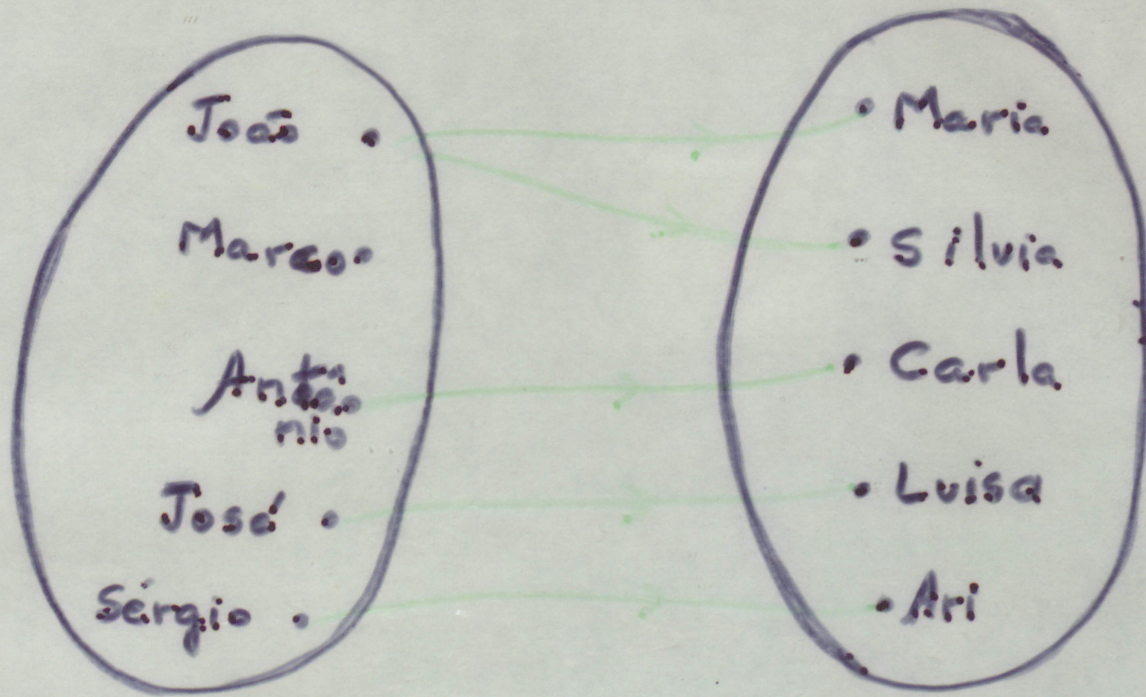 João
Marco
Antô
nio
José
Sérgio
Maria
Silvia
Carla
Luisa
Ari